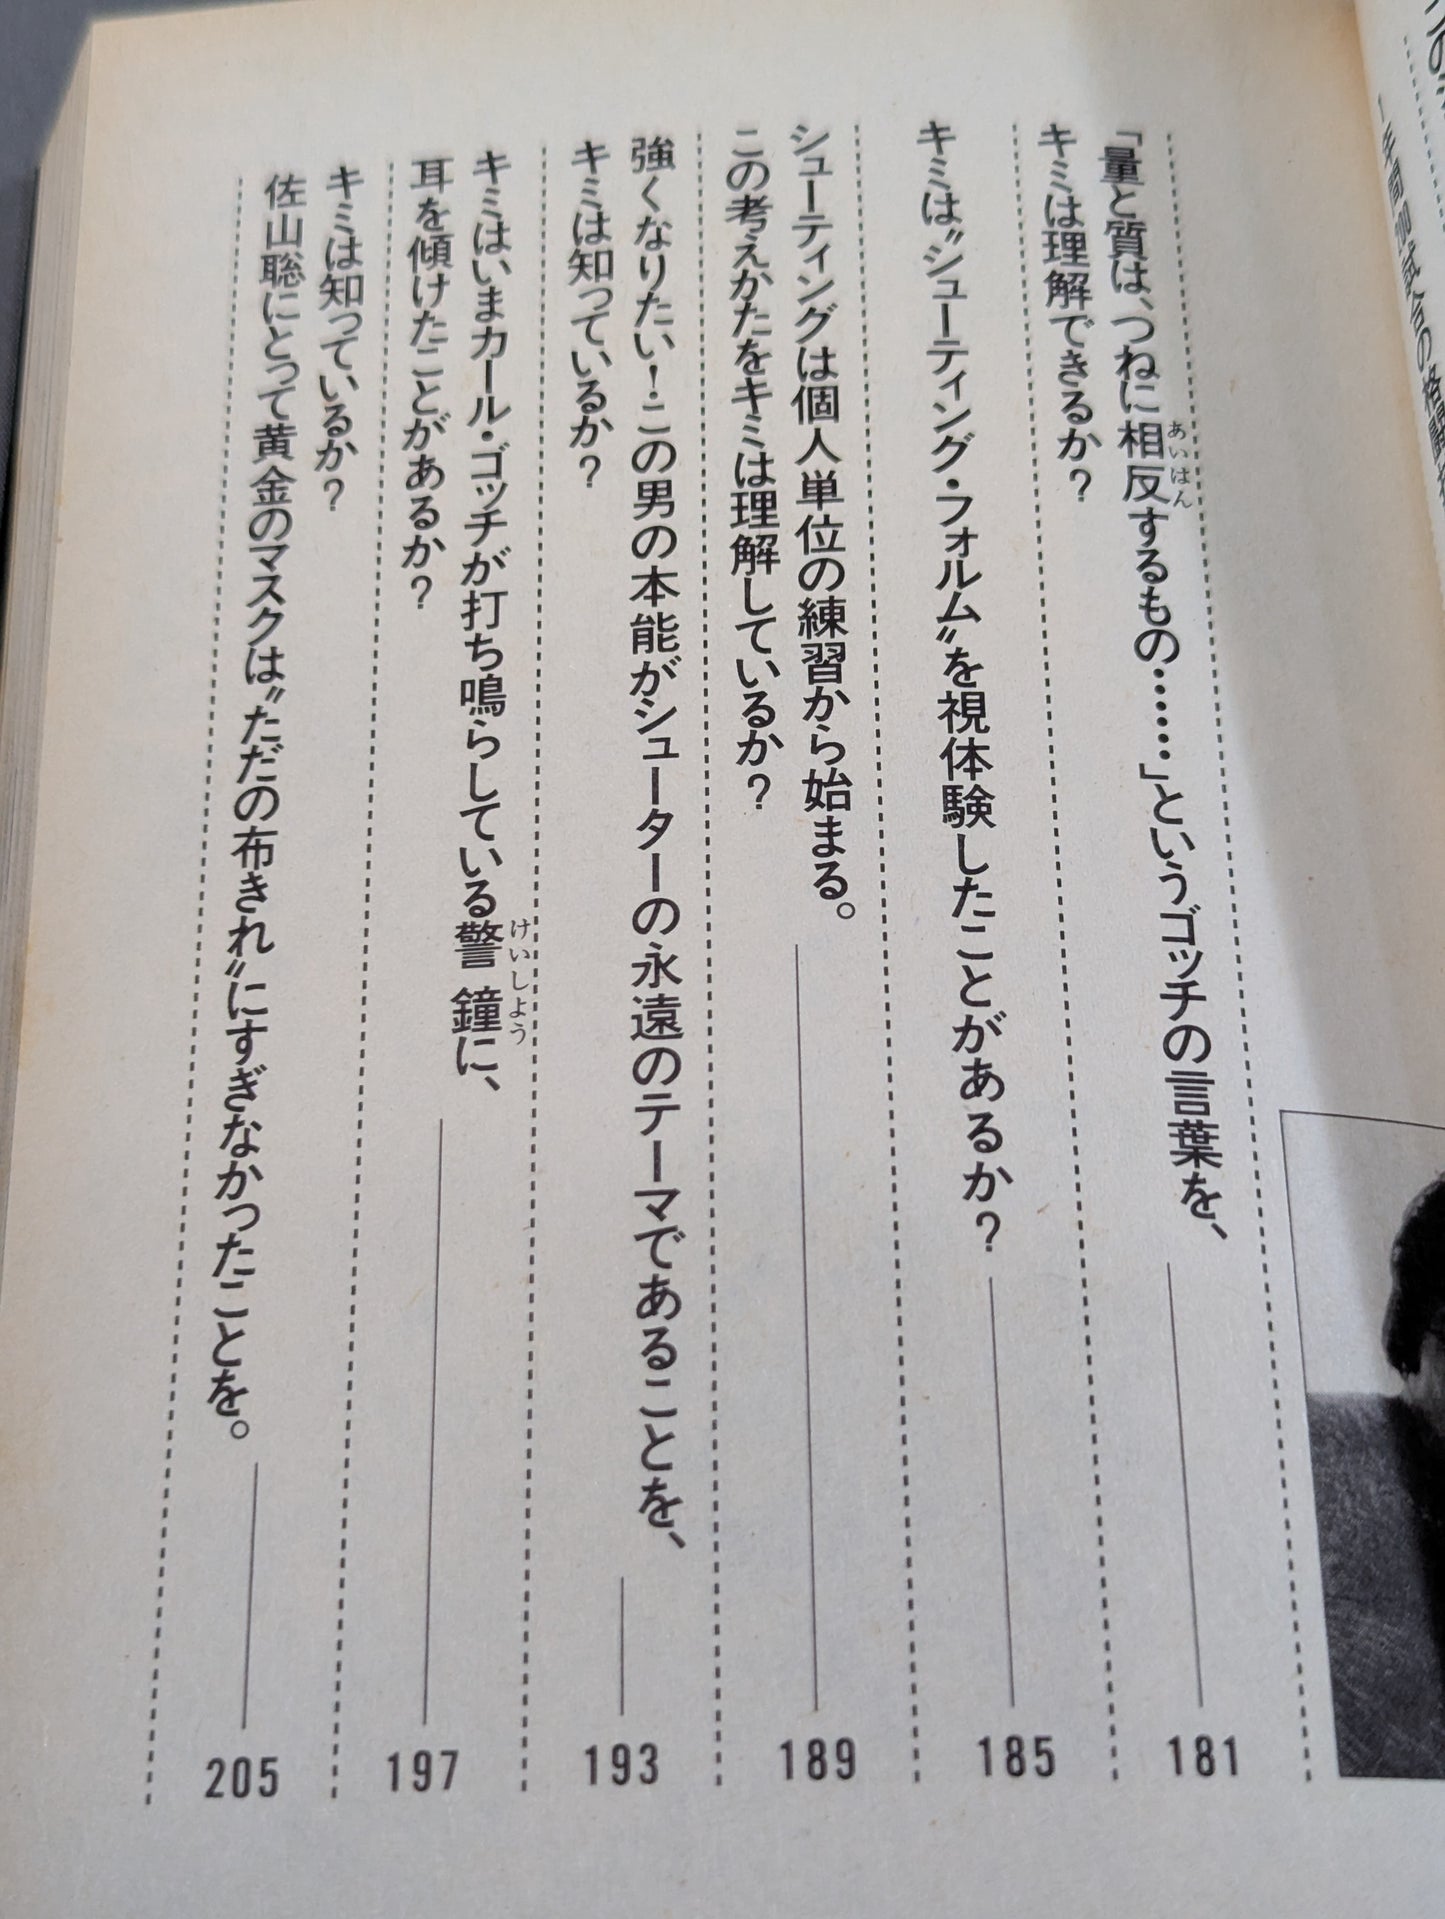 「量と質は、つねに相反するもの……」というゴッチの言葉を、
あいはん
キミは理解できるか？
181
キミは〝シューティング・フォルム〟を視体験したことがあるか？
185
シューティングは個人単位の練習から始まる。
この考えかたをキミは理解しているか？
189
強くなりたい！この男の本能がシューターの永遠のテーマであることを、
キミは知っているか？
193
キミはいまカール・ゴッチが打ち鳴らしている警鐘に、
けいしよう
耳を傾けたことがあるか？
197
キミは知っているか？
佐山聡にとって黄金のマスクは〝ただの布きれ〟にすぎなかったことを。
205